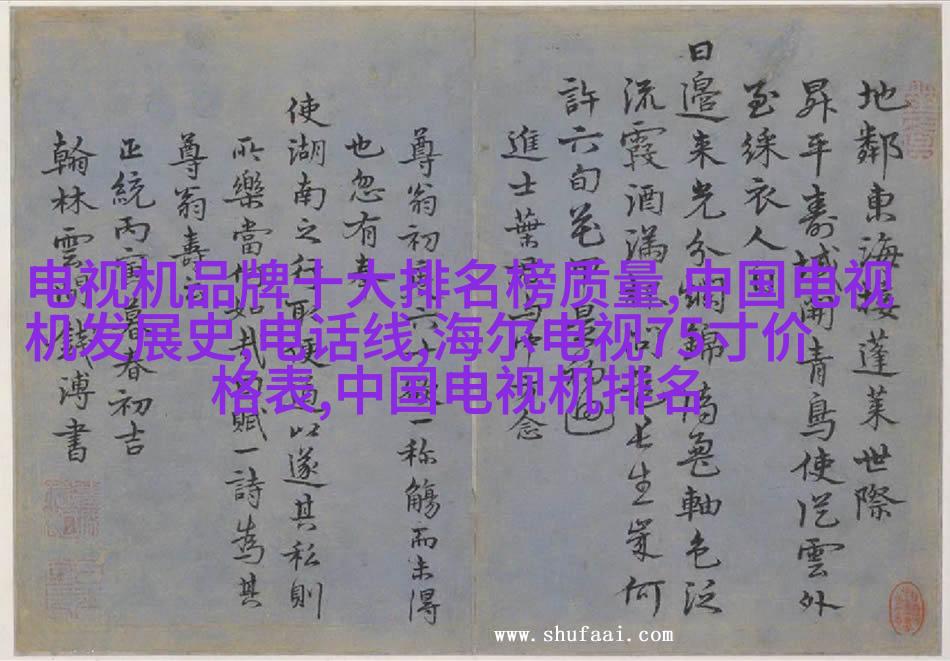 地鄰東海接蓬萊世際
昇平壽域開青鳥使從雲外
至綵衣人
日邊來光分錦軸色泛
流霞酒滿問長生何
許六旬花甲
進士葉念
尊翁初一称觴而未得
也忽有
使湖南之以遂其私則
所樂當賦一詩為其
尊翁壽
正統丙寅暮春初吉
翰林溥書
电视机品牌十大排名榜质量,中国电视
机发展史,电话线,海尔电视75寸价
格表,中国电视机排名
www.shufaai.com